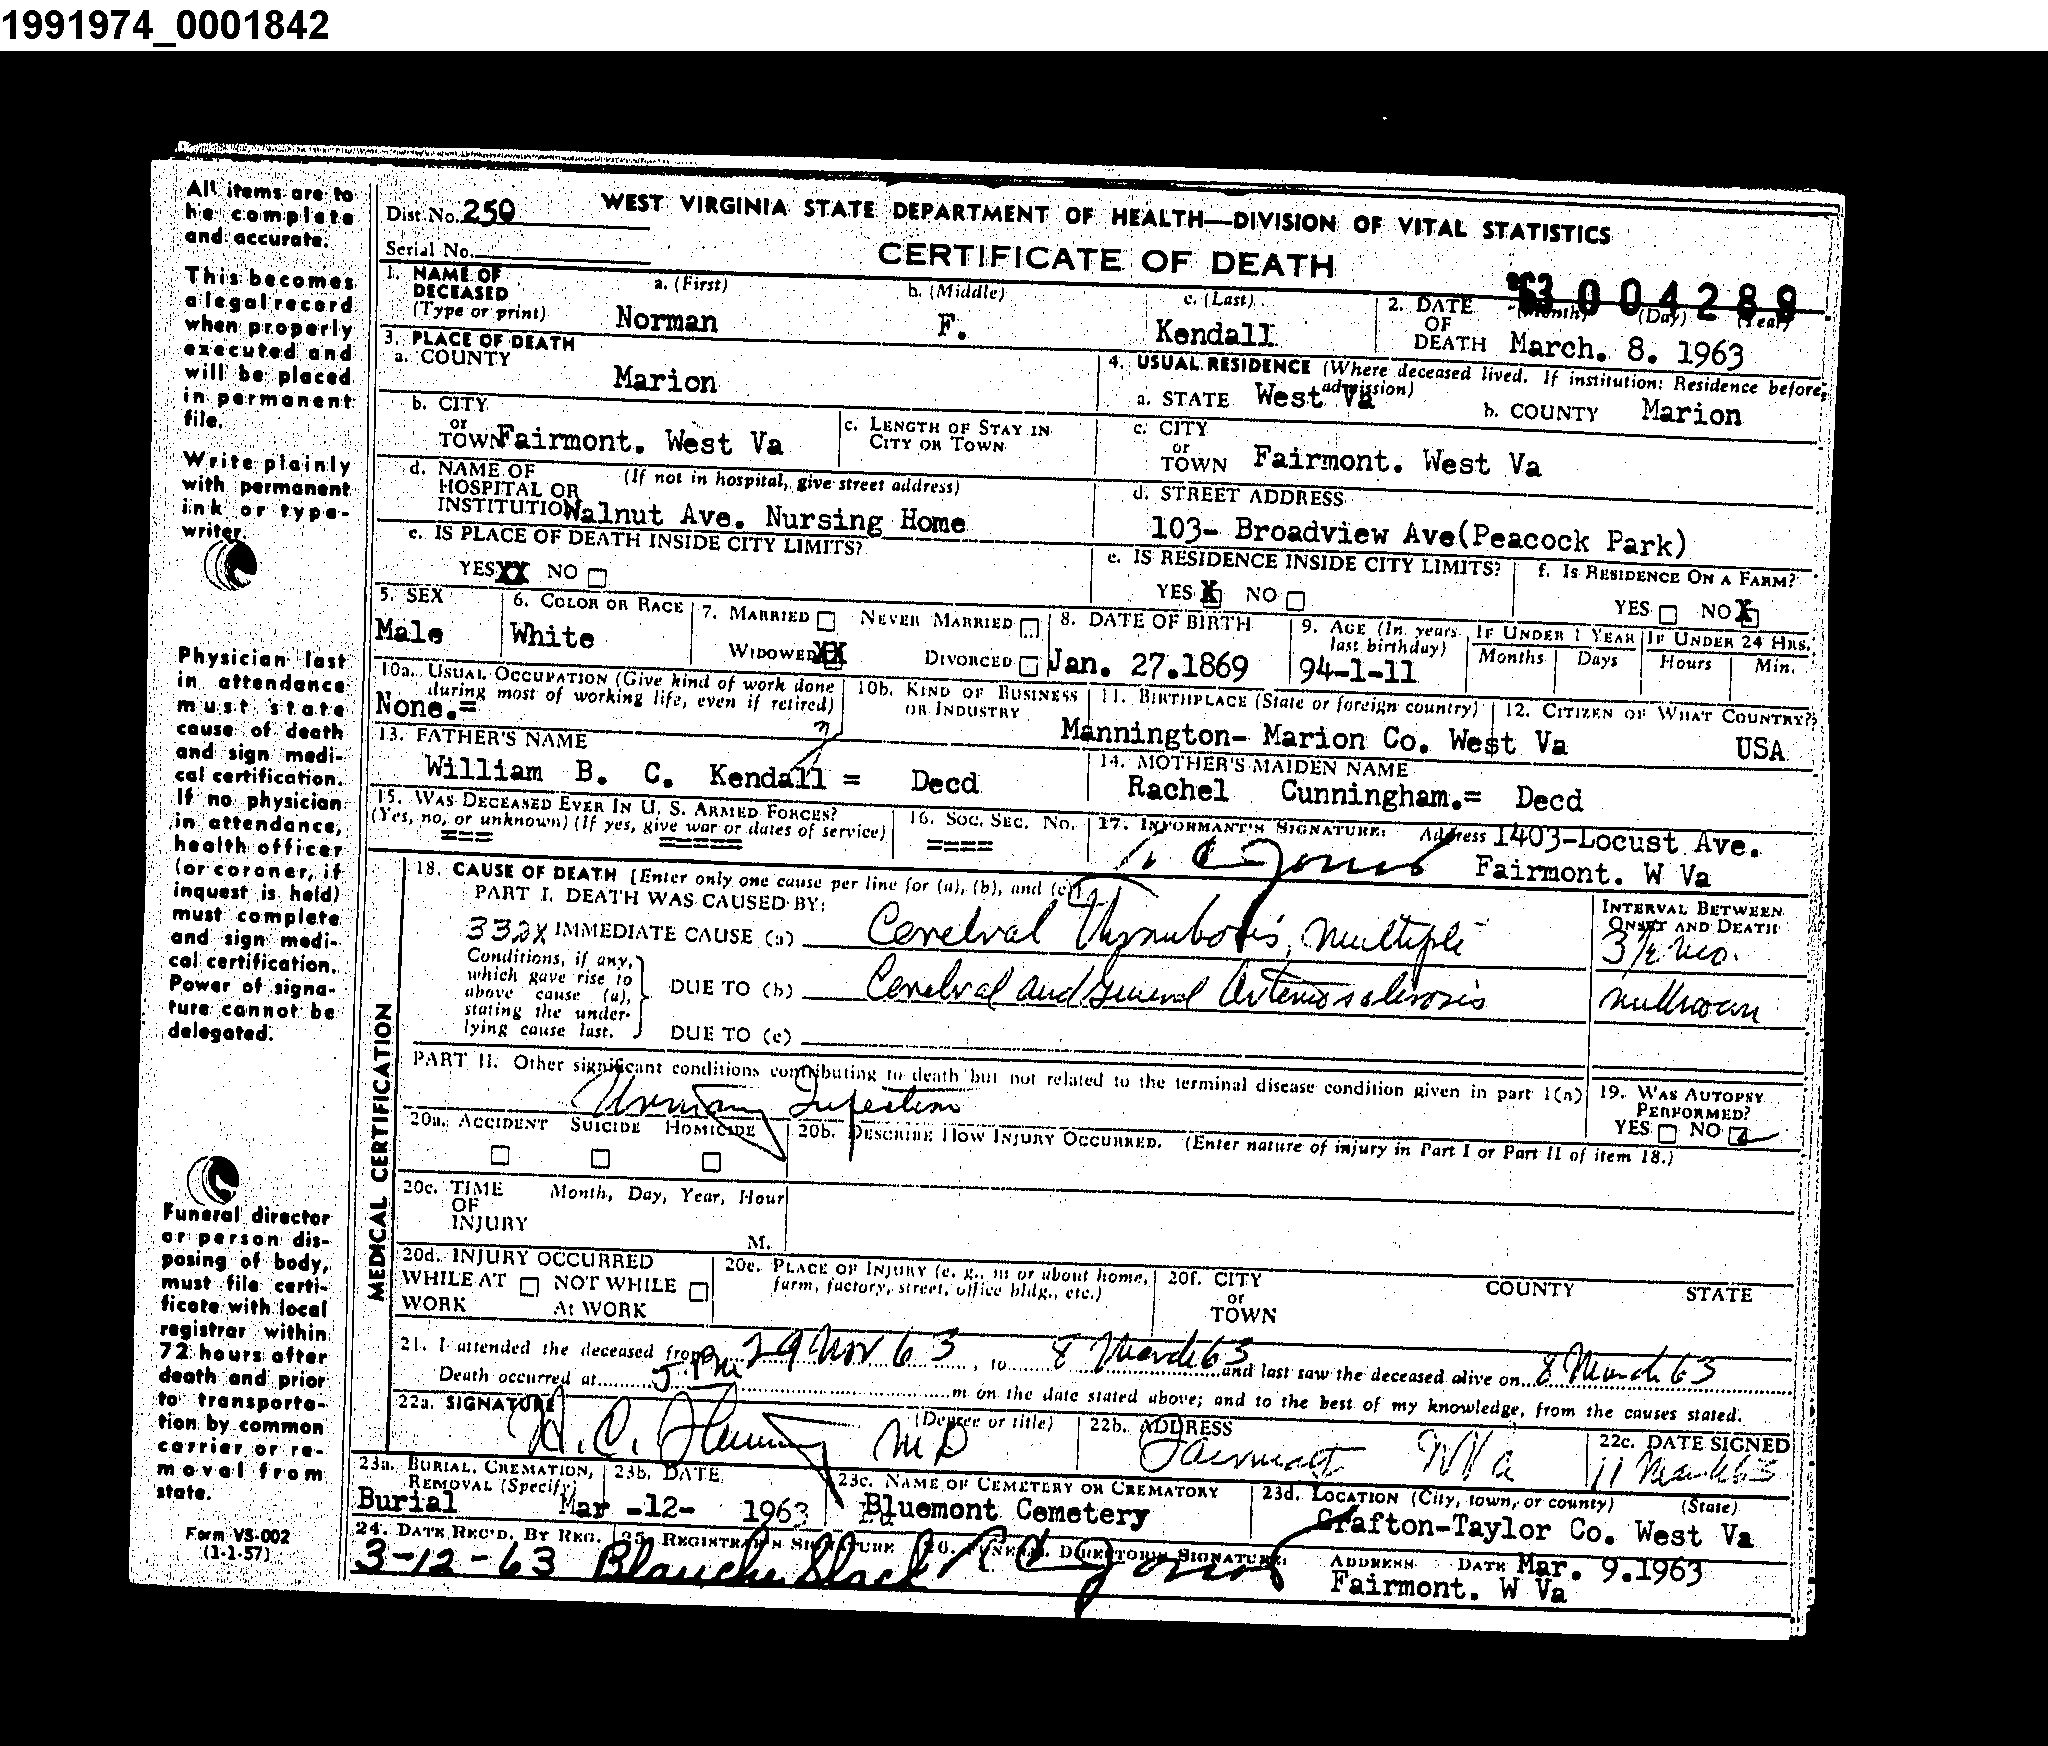 1991974_0001842
All items are to
be complete
and accurate.
This becomes
a legal record
when properly
executed and
will be placed
in permanent
file.
Write plainly
with permanent
ink or type-
writer.
Physician last
in attendance
must state
cause of death
and sign medi-
cal certification.
If no physician
in attendance,
health officer
(or coroner, if
inquest is held)
must complete
and sign medi-
cal certification.
Power of signa-
ture cannot be
delegated.
Funeral director
or person dis-
posing of body,
must file certi-
ficate with local
registrar within
72 hours after
death and prior
to transporta-
tion by common
carrier or re-
moval from
state.
Form VS-002
(1-1-57)
Dist. No. 250 WEST VIRGINIA STATE DEPARTMENT OF HEALTH—DIVISION OF VITAL STATISTICS
Serial No. CERTIFICATE OF DEATH
63 004289
1. NAME OF DECEASED (Type or print) a. (First) b. (Middle) c. (Last) 2. DATE OF DEATH (Month) (Day) (Year)
Norman F. Kendall March. 8. 1963
3. PLACE OF DEATH
a. COUNTY Marion
4. USUAL RESIDENCE (Where deceased lived. If institution: Residence before admission)
a. STATE West Va b. COUNTY Marion
b. CITY or TOWN Fairmont. West Va c. LENGTH OF STAY IN CITY OR TOWN
c. CITY or TOWN Fairmont. West Va
d. NAME OF HOSPITAL OR INSTITUTION (If not in hospital, give street address)
Walnut Ave. Nursing Home
d. STREET ADDRESS
103- Broadview Ave(Peacock Park)
e. IS PLACE OF DEATH INSIDE CITY LIMITS?
YES XX NO
e. IS RESIDENCE INSIDE CITY LIMITS? f. IS RESIDENCE ON A FARM?
YES X NO YES NO X
5. SEX 6. COLOR OR RACE 7. MARRIED NEVER MARRIED 8. DATE OF BIRTH 9. AGE (In years last birthday) IF UNDER 1 YEAR IF UNDER 24 HRS.
Male White WIDOWED XX DIVORCED Jan. 27.1869 94-1-11 Months Days Hours Min.
10a. USUAL OCCUPATION (Give kind of work done during most of working life, even if retired) 10b. KIND OF BUSINESS OR INDUSTRY 11. BIRTHPLACE (State or foreign country) 12. CITIZEN OF WHAT COUNTRY?
None.= Mannington- Marion Co. West Va USA
13. FATHER'S NAME 14. MOTHER'S MAIDEN NAME
William B. C. Kendall = Decd Rachel Cunningham.= Decd
15. WAS DECEASED EVER IN U. S. ARMED FORCES? 16. SOC. SEC. No. 17. INFORMANT'S SIGNATURE: Address 1403-Locust Ave.
(Yes, no, or unknown) (If yes, give war or dates of service)
=== ===== ==== C Jones Fairmont. W Va
MEDICAL CERTIFICATION
18. CAUSE OF DEATH (Enter only one cause per line for (a), (b), and (c))
PART I. DEATH WAS CAUSED BY: INTERVAL BETWEEN ONSET AND DEATH
332X IMMEDIATE CAUSE (a) Cerebral Thrombosis, multiple 3 1/2 mo.
Conditions, if any, which gave rise to above cause (a), stating the under-lying cause last.
DUE TO (b) Cerebral and general Arteriosclerosis unknown
DUE TO (c)
PART II. Other significant conditions contributing to death but not related to the terminal disease condition given in part 1(a) 19. WAS AUTOPSY PERFORMED?
Urinary Infection YES NO
20a. ACCIDENT SUICIDE HOMICIDE 20b. DESCRIBE HOW INJURY OCCURRED. (Enter nature of injury in Part I or Part II of item 18.)
20c. TIME OF INJURY Month, Day, Year, Hour
M.
20d. INJURY OCCURRED 20e. PLACE OF INJURY (e. g., in or about home, farm, factory, street, office bldg., etc.) 20f. CITY or TOWN COUNTY STATE
WHILE AT WORK NOT WHILE AT WORK
21. I attended the deceased from 29 Nov 63, to 8 March 63 and last saw the deceased alive on 8 March 63
Death occurred at 5 PM m on the date stated above; and to the best of my knowledge, from the causes stated.
22a. SIGNATURE (Degree or title) 22b. ADDRESS 22c. DATE SIGNED
H. C. Fleming MD Fairmont WVa 11 March 63
23a. BURIAL, CREMATION, REMOVAL (Specify) 23b. DATE 23c. NAME OF CEMETERY OR CREMATORY 23d. LOCATION (City, town, or county) (State)
Burial Mar -12- 1963 Bluemont Cemetery Grafton-Taylor Co. West Va
24. DATE REC'D. BY REG. 25. REGISTRAR'S SIGNATURE 26. FUNERAL DIRECTOR'S SIGNATURE: ADDRESS DATE Mar. 9.1963
3-12-63 Blanche Slack C Jones Fairmont. W Va